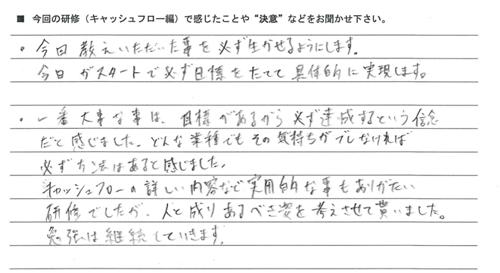 ■ 今回の研修（キャッシュフロー編）で感じたことや“決意”などをお聞かせ下さい。
・今回教えいただいた事を必ず生かせるようにします。
今日がスタートで必ず目標をたてて具体的に実現します。
・一番大事な事は、目標があるから必ず達成するという信念
だと感じました。どんな業種でもその気持ちがブレなければ
必ず方法はあると感じました。
キャッシュフローの詳しい内容など実用的な事もありがたい
研修でしたが、人と成りあるべき姿を考えさせて貰いました。
勉強は継続していきます。